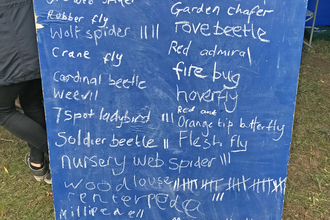 web spider
Robber fly
Wolf spider ||||
Crane fly
Cardinal beetle
weevil
7 spot ladybird |||
Soldier beetle ||
nursery web spider |||
woodlouse
centerpeda
Millipede
Garden chafer
rove beetle
Red admiral
fire bug
hoverfly
Red and
Orange tip butterfly
Flesh fly